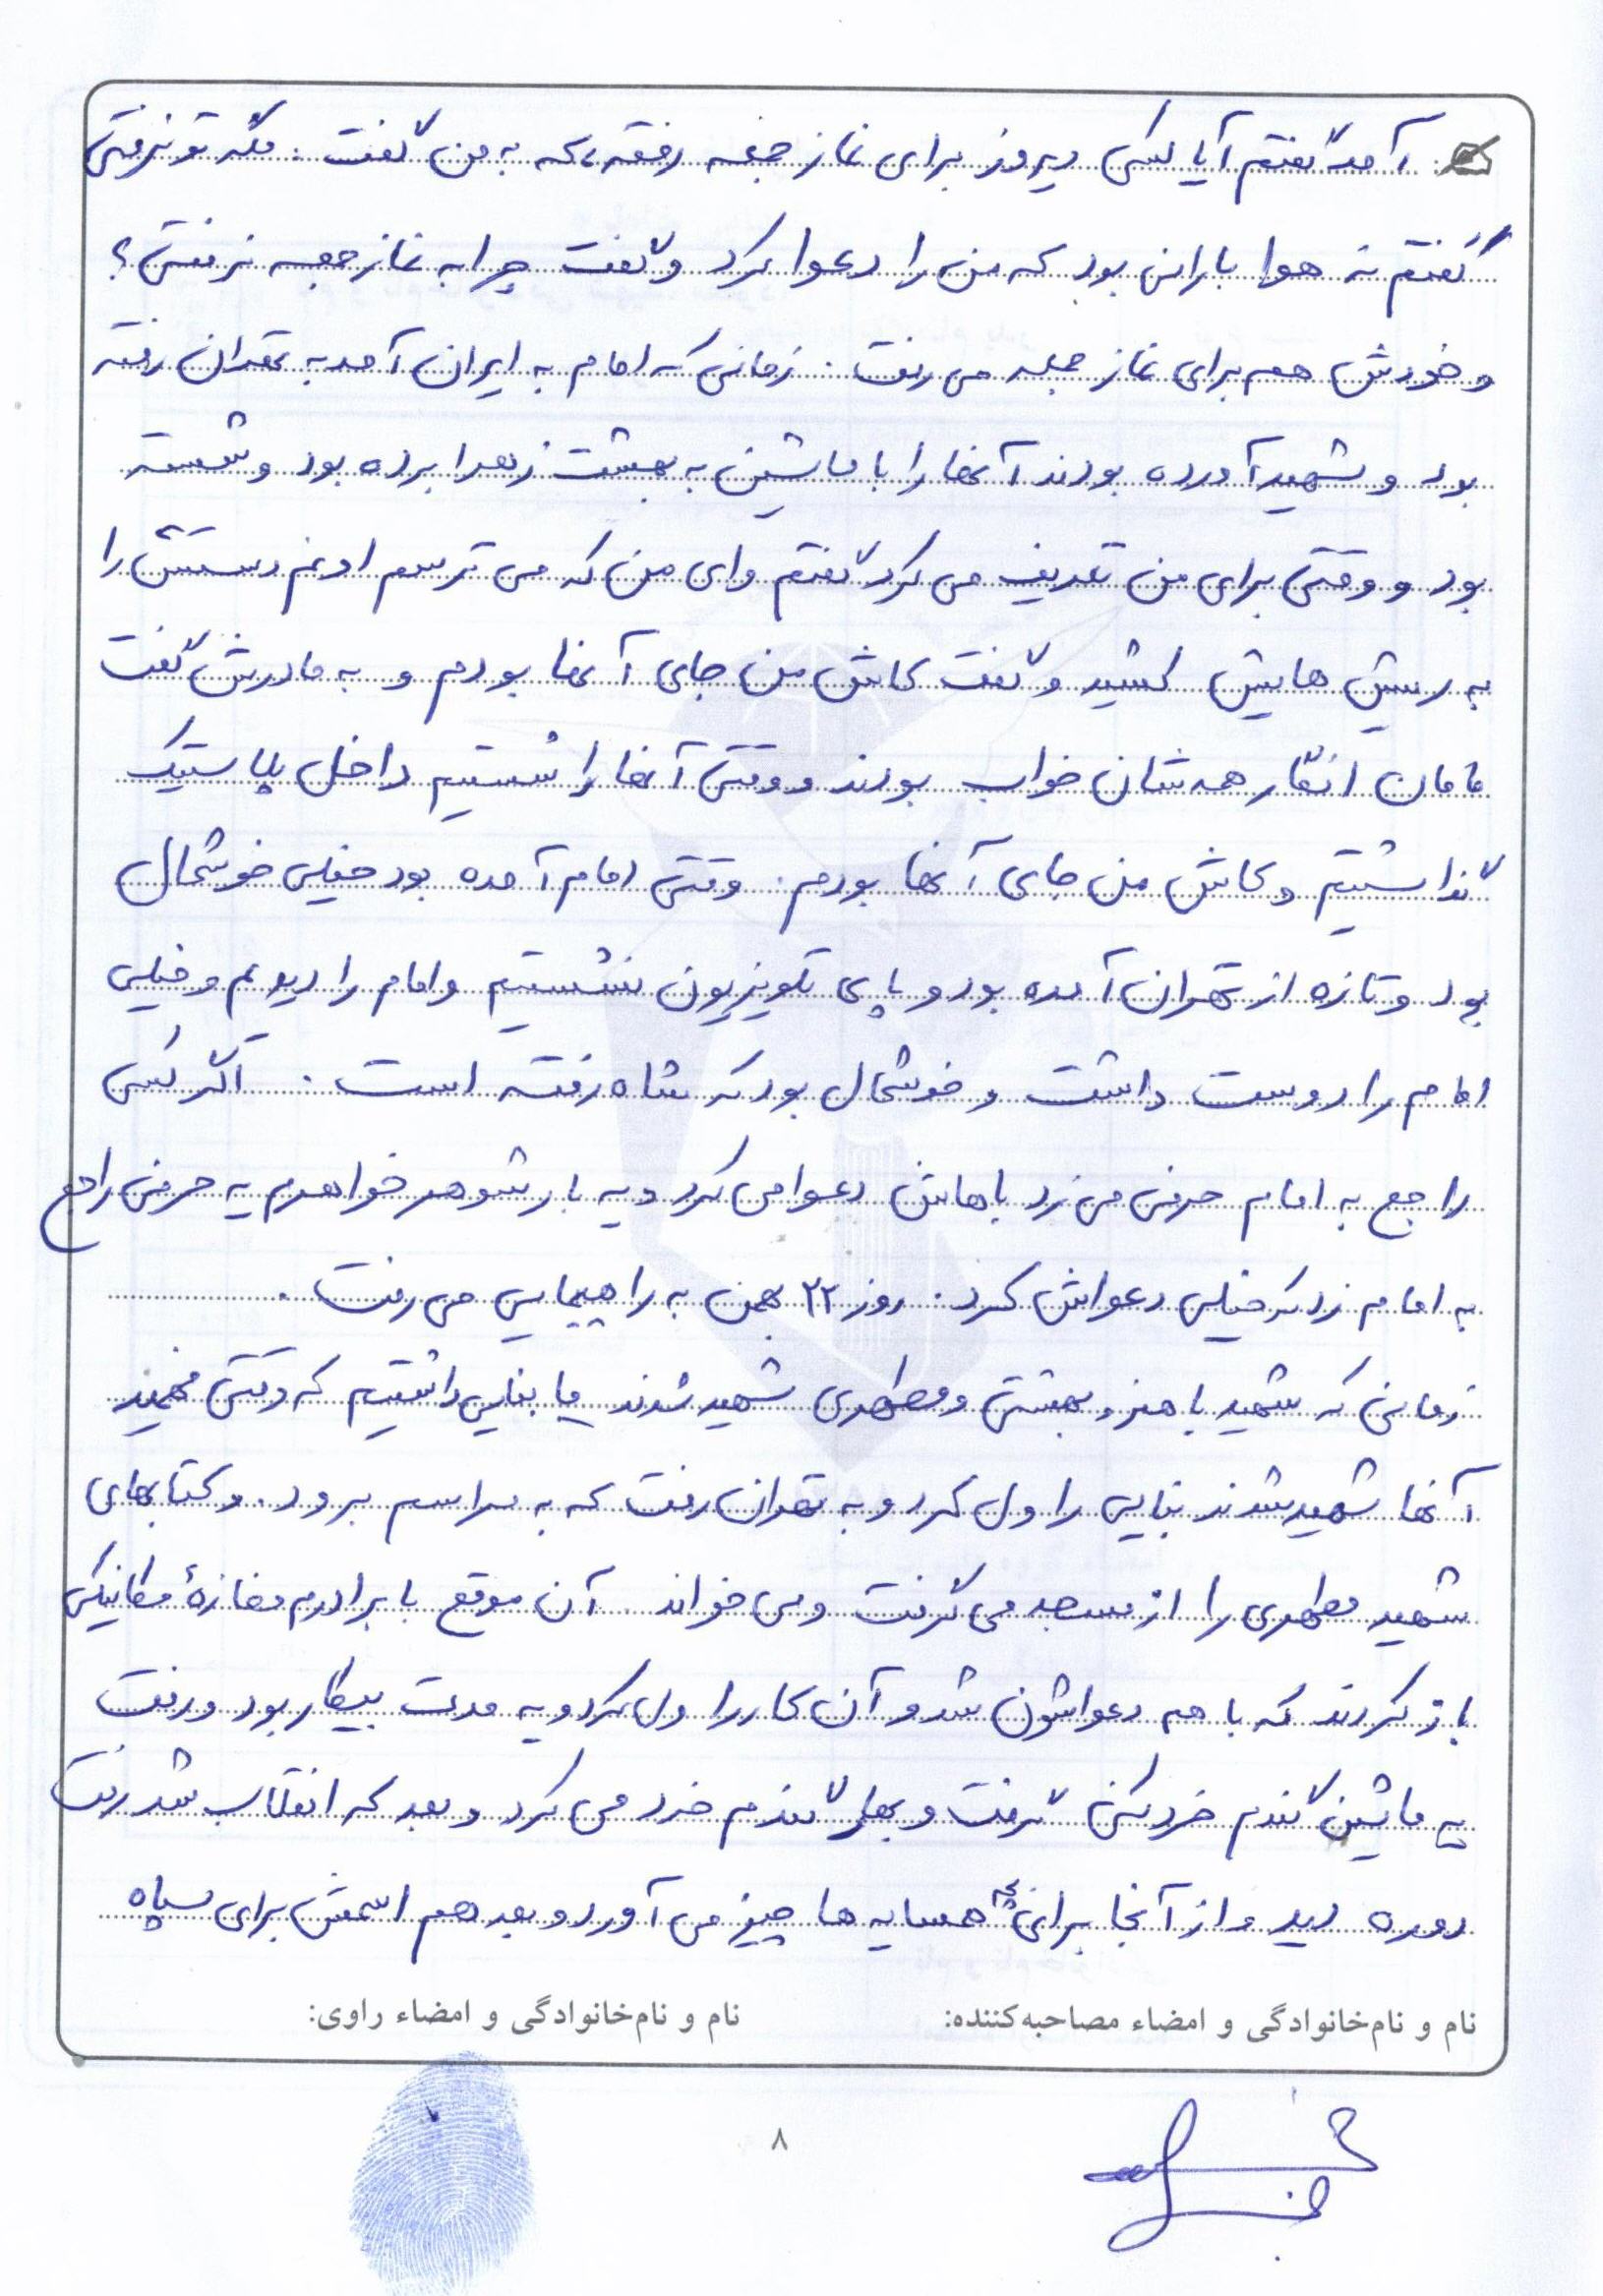 آمد گفتم آیا کسی دیروز برای نماز جمعه رفته، که به من گفت. مگه تو نرفتی
گفتم نه هوا بارانی بود که من را دعوا کرد و گفت چرا به نماز جمعه نرفتی؟
و خودش هم برای نماز جمعه می رفت. زمانی که امام به ایران آمد به تهران رفته
بود و شهید آورده بودند آنها را با ماشین به بهشت زهرا برده بود و شسته
بود و وقتی برای من تعریف می کرد گفتم وای من که می ترسم اونم دستش را
به ریش هایش کشید و گفت کاش من جای آنها بودم و به مادرش گفت
مامان انگار همه شان خواب بودند و وقتی آنها را شستیم داخل پلاستیک
گذاشتیم و کاش من جای آنها بودم. وقتی امام آمده بود خیلی خوشحال
بود و تازه از تهران آمده بود و پای تلویزیون نشستیم و امام را دیدیم و خیلی
امام را دوست داشت و خوشحال بود که شاه رفته است. اگر کسی
راجع به امام حرفی می زد باهاش دعوا می کرد و یه بار شوهر خواهرم یه حرفی راجع
به امام زد که خیلی دعواش کرد. روز ۲۲ بهمن به راهپیمایی می رفت.
زمانی که شهید باهنر و بهشتی و مطهری شهید شدند ما بنایی داشتیم که وقتی فهمید
آنها شهید شدند بنایی را ول کرد و به تهران رفت که به مراسم برود. و کتابهای
شهید مطهری را از مسجد می گرفت و می خواند. آن موقع با برادرم مغازهٔ مکانیکی
باز کردند که با هم دعواشون شد و آن کار را ول کرد و یه مدت بیکار بود و رفت
یه ماشین گندم خردکنی گرفت و گندم خرد می کرد و بعد که انقلاب شد رفت
دوره دید و از آنجا برای بچه همسایه ها چیز می آورد و بعد هم اسمش برای سپاه
نام و نام‌خانوادگی و امضاء مصاحبه‌کننده: نام و نام‌خانوادگی و امضاء راوی:
۸